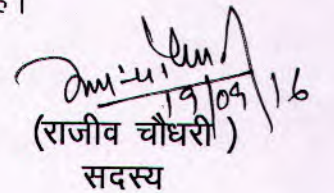 है।
19/09/16
(राजीव चौधरी )
सदस्य